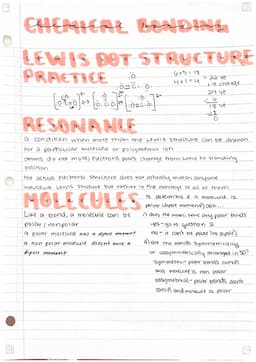 CHEMICAL BONDING
LEWIS DOT STRUCTURE
PRACTICE
RESONANCE
a condition when more than one Lewis structure can be drawn
for a particular molecule or polyatomic ion
atoms do not move, electron pairs change from lone to bonding
position
the actual electronic structure does not actually match anyone
individual Lewis structure but rather is the average of all of them
MOLECULES
Like a bond, a molecule can be
polar / nonpolar
a polar molecule has a dipole moment
a non polar molecule doesnt have a
dipole moment
to determine if a molecule is
polar (dipole moment) ask...
1) does the molec have any polar bonds
yes - go to question 2
no - it can't be polar (no dipole)
2) are the bonds symmetrically
or assymmetrically arranged in 3D?
symmetric - polar bonds cancel
and molecule is non polar
assymetrical - polar bonds dont
cancel and molecule is polar